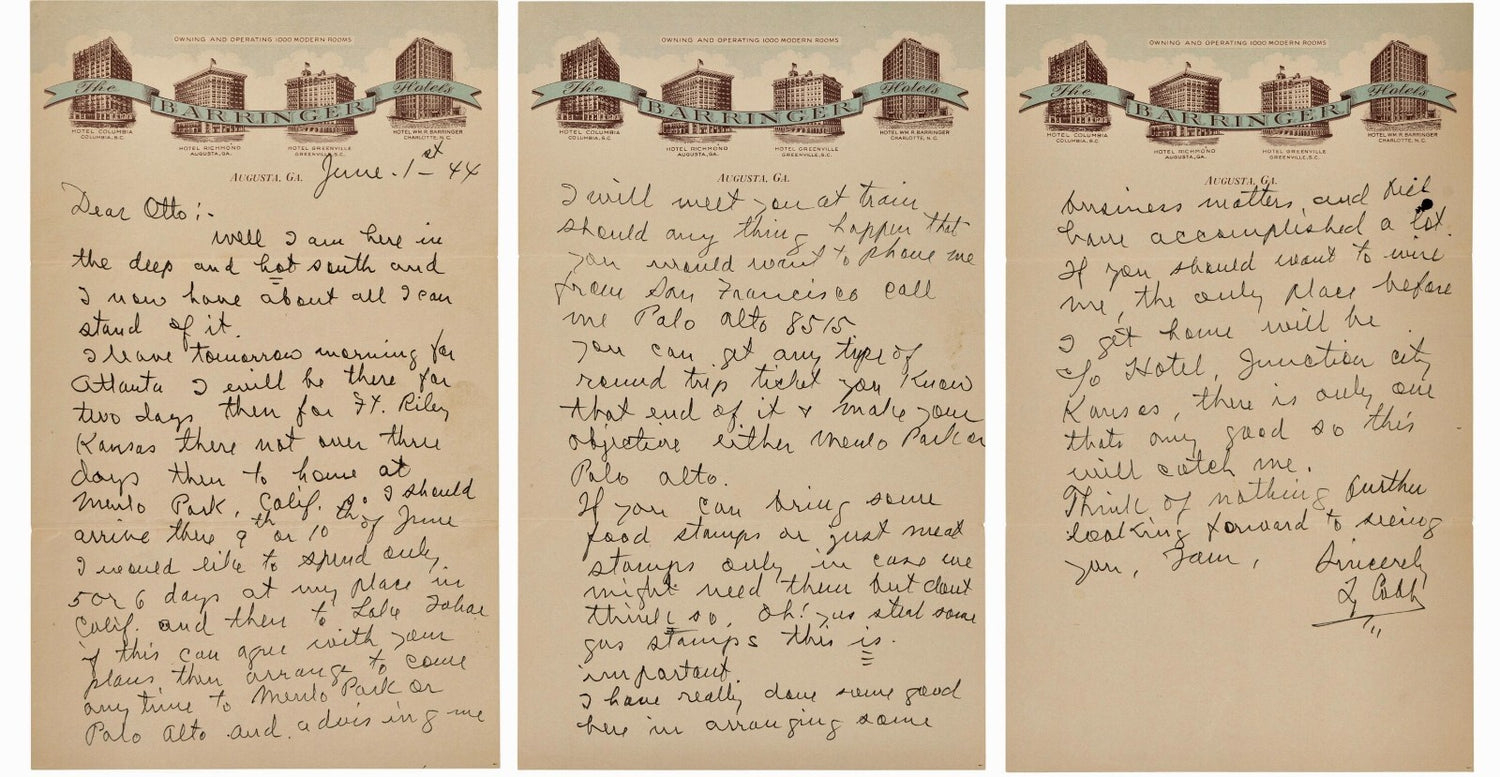 OWNING AND OPERATING 1000 MODERN ROOMS
The BARRINGER Hotels
HOTEL COLUMBIA
COLUMBIA, S.C.
HOTEL RICHMOND
AUGUSTA, GA.
HOTEL GREENVILLE
GREENVILLE, S.C.
HOTEL WM. R. BARRINGER
CHARLOTTE, N.C.
AUGUSTA, GA.
June - 1st - 44
Dear Otto:-
Well I am here in
the deep and hot south and
I now have about all I can
stand of it.
I leave tomorrow morning for
Atlanta I will be there for
two days then for Ft. Riley
Kansas there not over three
days then to home at
Menlo Park, Calif. So I should
arrive there 9th or 10th of June
I would like to spend only
5 or 6 days at my place in
Calif. and then to Lake Tahoe
if this can agree with your
plans, then arrange to come
any time to Menlo Park or
Palo Alto and advising me
OWNING AND OPERATING 1000 MODERN ROOMS
The BARRINGER Hotels
HOTEL COLUMBIA
COLUMBIA, S.C.
HOTEL RICHMOND
AUGUSTA, GA.
HOTEL GREENVILLE
GREENVILLE, S.C.
HOTEL WM. R. BARRINGER
CHARLOTTE, N.C.
AUGUSTA, GA.
I will meet you at train
should any thing happen that
you would want to phone me
from San Francisco call
me Palo Alto 8515
you can get any type of
round trip ticket you know
that end of it & make your
objective either Menlo Park or
Palo alto.
If you can bring some
food stamps or just meat
stamps only in case we
might need them but dont
think so, Oh! yes steal some
gas stamps this is
important.
I have really done some good
here in arranging some
OWNING AND OPERATING 1000 MODERN ROOMS
The BARRINGER Hotels
HOTEL COLUMBIA
COLUMBIA, S.C.
HOTEL RICHMOND
AUGUSTA, GA.
HOTEL GREENVILLE
GREENVILLE, S.C.
HOTEL WM. R. BARRINGER
CHARLOTTE, N.C.
AUGUSTA, GA.
business matters, and
have accomplished a lot.
If you should want to wire
me, the only place before
I get home will be
c/o Hotel, Junction city
Kansas, there is only one
thats any good so this
will catch me.
Think of nothing further
looking forward to seeing
you, I am, Sincerely
Ty Cobb